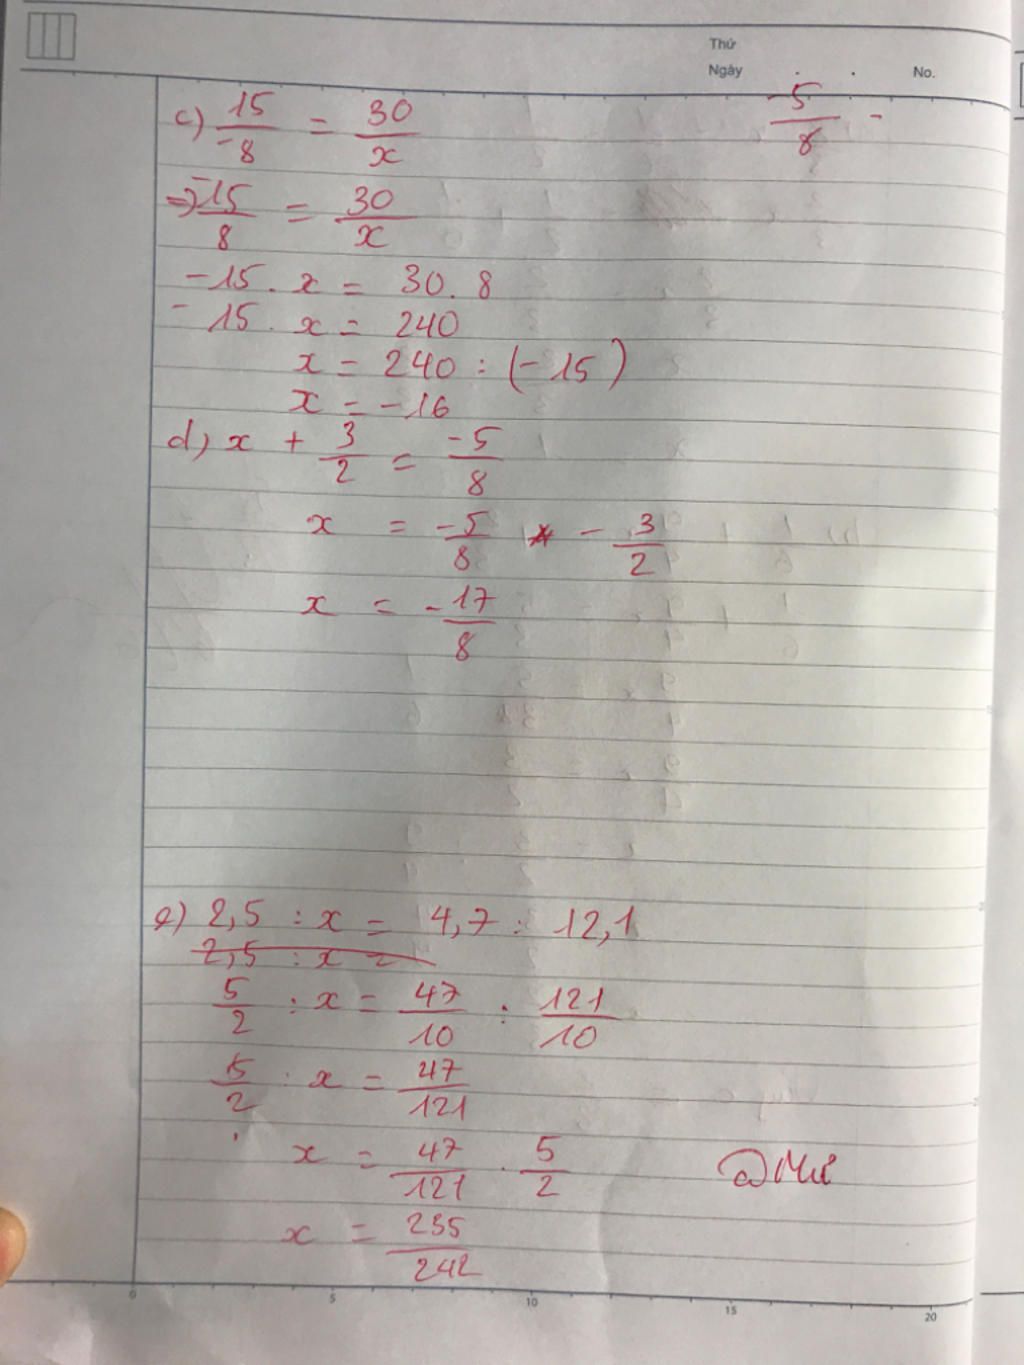 Thứ
Ngày . . No.
c) 15/-8 = 30/x
-5/8 -
=> -15/8 = 30/x
-15 . x = 30 . 8
-15 . x = 240
x = 240 : (-15)
x = -16
d) x + 3/2 = -5/8
x = -5/8 - 3/2
x = -17/8
e) 2,5 : x = 4,7 : 12,1
2,5 : x =
5/2 : x = 47/10 : 121/10
5/2 : x = 47/121
x = 47/121 . 5/2
x = 235/242
0 5 10 15 20